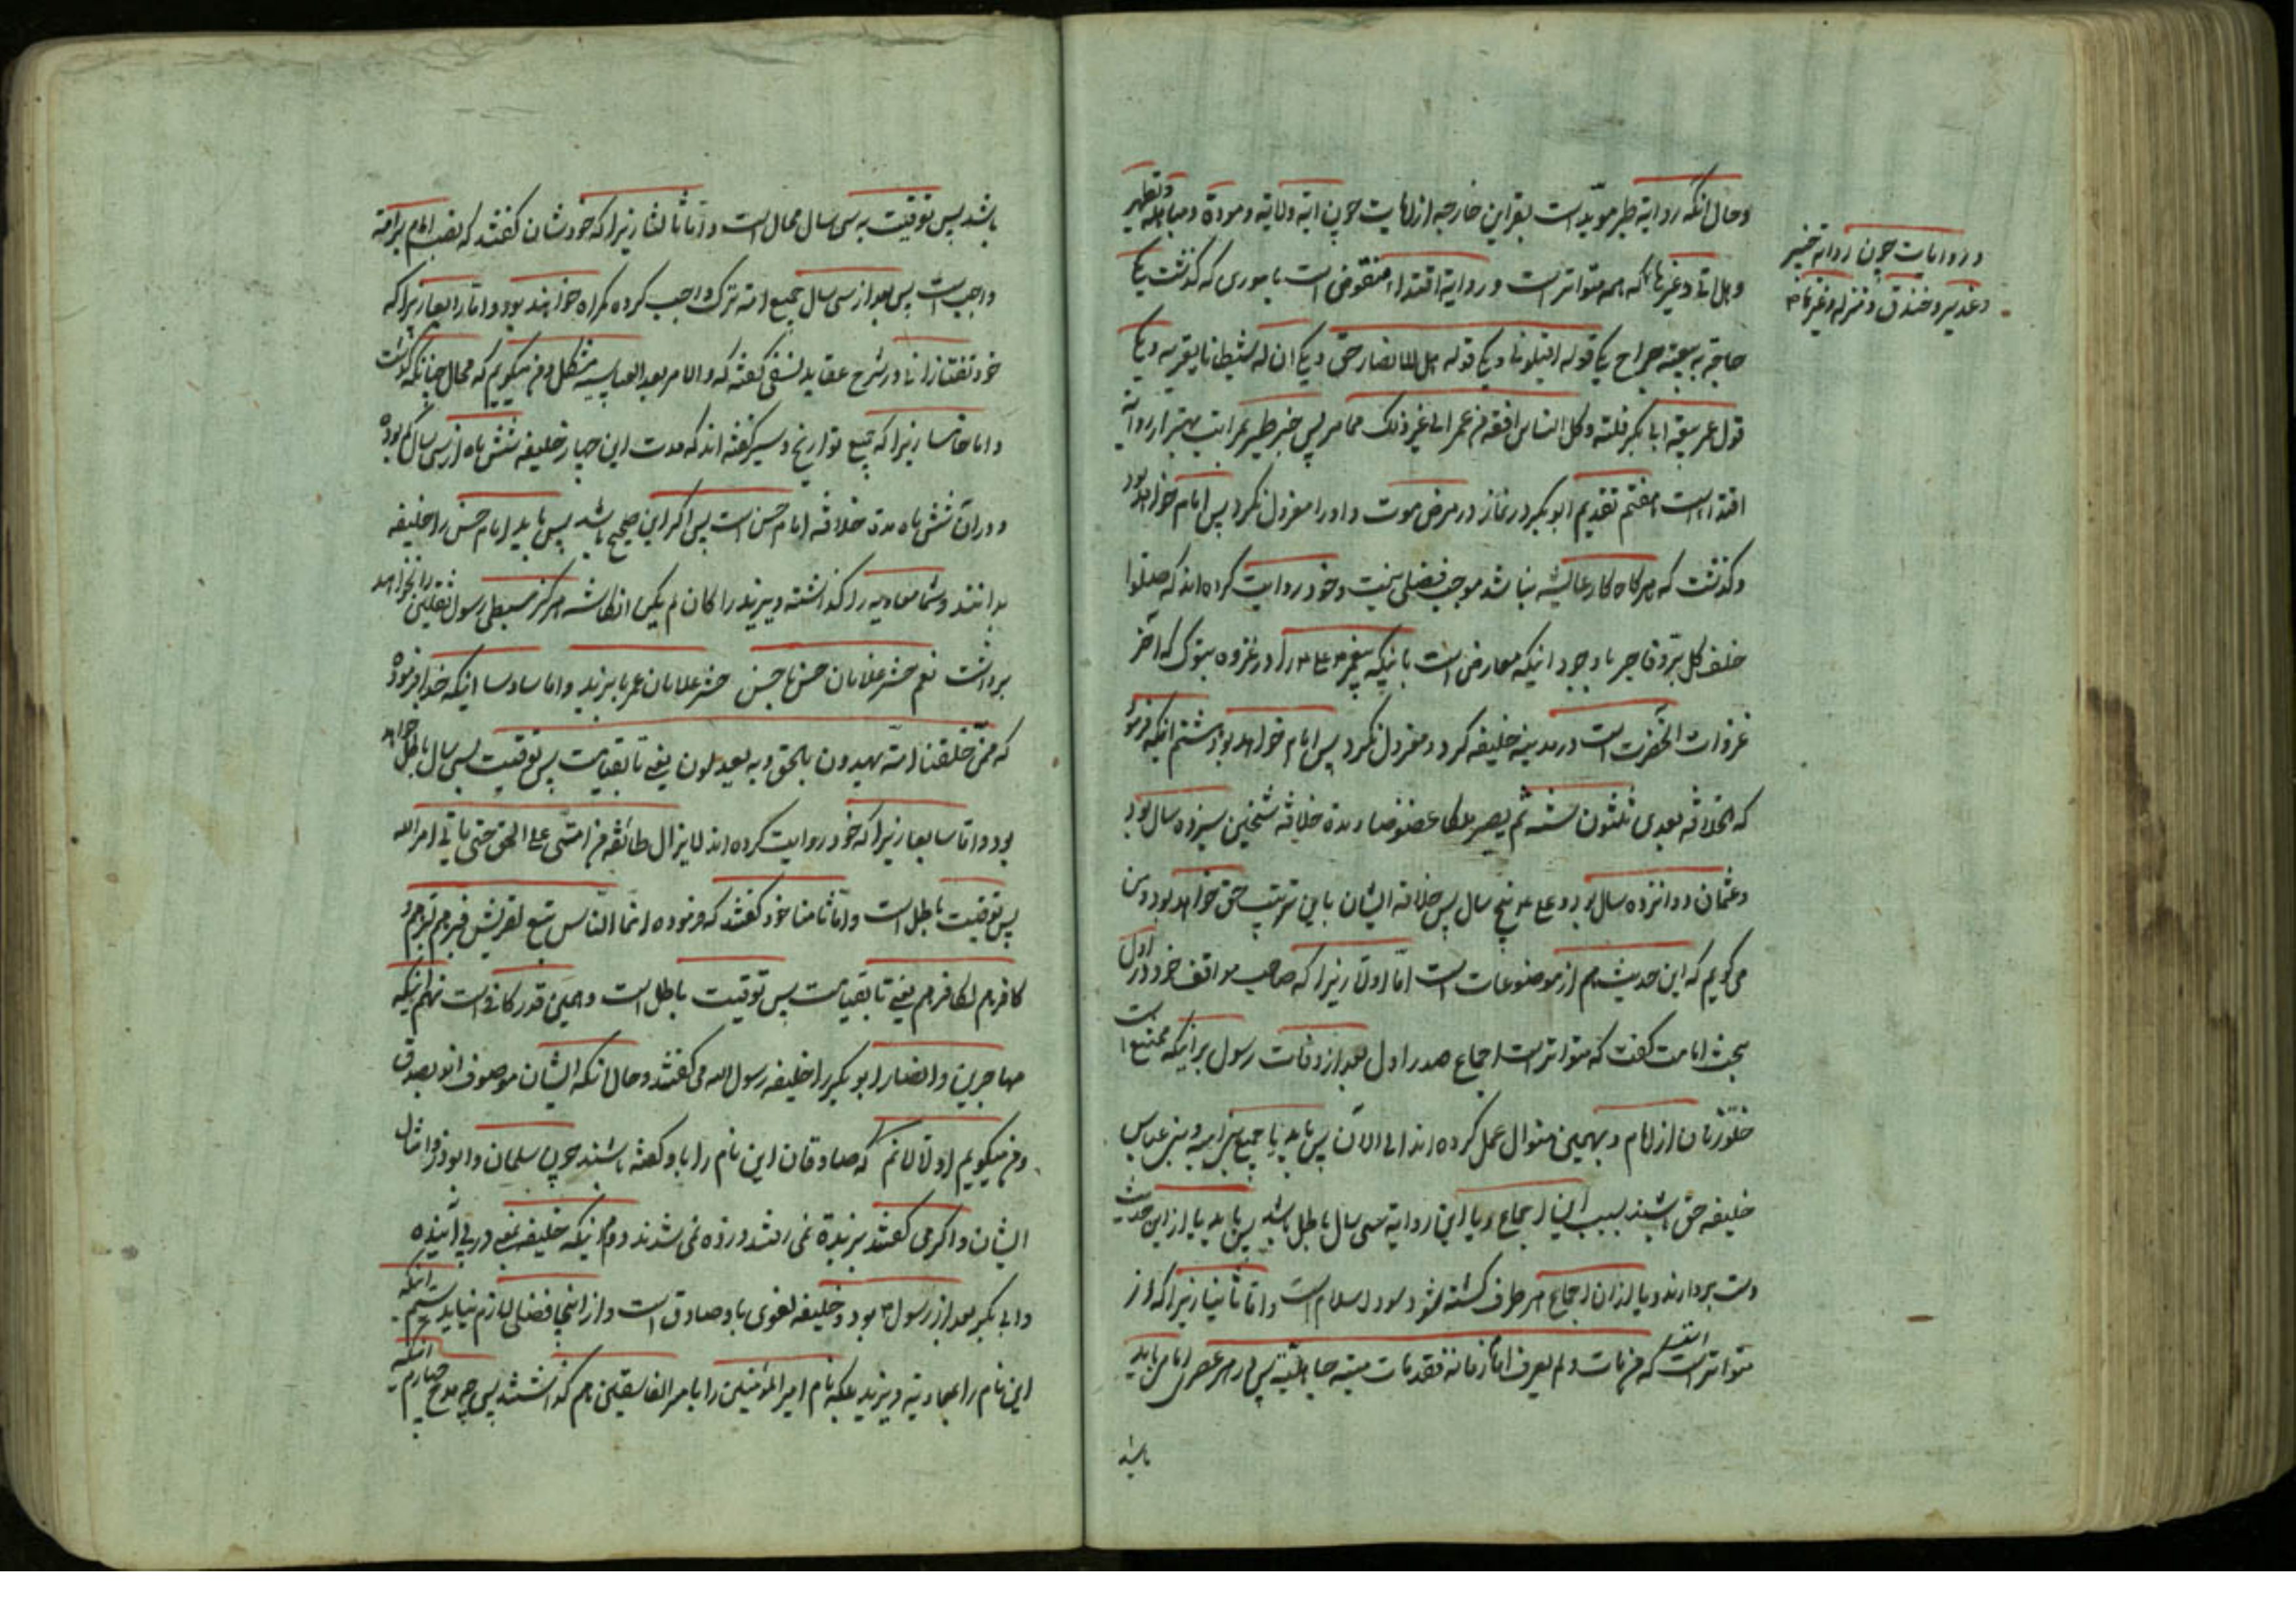 وحال آنکه روایة طیر موید است بقراین خارجه از آیات چون آیة ولایة و مودة و مباهله و تطهیر
و هل اتی و غیرها که همه متواتر است و روایة اقتدا منقوض است باموری که گذشت یکی
قوله اقیلونی و دیگر قوله هل للانصار حق و دیگر ان لی شیطانا یعترینی و دیگر
قول عمر بیعة ابی بکر فلتة و کل الناس افقه من عمر الی غیر ذلک مما مر پس خبر طیر بمراتب بهتر از روایة
اقتدا است هفتم تقدیم ابو بکر در نماز در مرض موت و او را معزول نکرد پس امام خواهد بود
و گذشت که هرگاه کار عایشه نباشد موجب فضلی نیست و خود روایت کرده اند که صلوا
خلف کل بر و فاجر با وجود اینکه معارض است باینکه پیغمبر علی را در غزوه تبوک که آخر
غزوات آنحضرت است در مدینه خلیفه کرد و معزول نکرد پس امام خواهد بود هشتم آنکه فرمود
که الخلافة بعدی ثلثون سنة ثم یصیر ملکا عضوضا و مدة خلافة شیخین سیزده سال بود
و عثمان دوانزده سال بود و علی پنج سال پس خلافة ایشان باین ترتیب حق خواهد بود و من
می گویم که این حدیث هم از موضوعات است اما اولا زیرا که صاحب مواقف خود در اول
بحث امامت گفت که متواتر است اجماع صدر اول بعد از وفات رسول بر اینکه ممتنع است
خلو زمان از امام و بهمین منوال عمل کرده اند الی الآن پس باید یا جمیع بنی امیه و بنی عباس
خلیفه حق باشند بسبب این اجماع و یا این روایة سی سال باطل باشد پس باید یا از این حدیث
دست بردارند و یا از آن اجماع هر طرف کشته شود سود اسلام است و اما ثانیا زیرا که از
متواتر است که من مات و لم یعرف امام زمانه فقد مات میتة جاهلیة پس در هر عصر امامی باید
باشد
و روایات چون روایة خیبر
و غدیر و خندق و منزله و غیرها
باشد پس توقیت به سی سال محال است و اما ثالثا زیرا که خودشان گفتند که نصب امام بر امة
واجب است پس بعد از سی سال جمیع امة ترک واجب کرده گمراه خواهند بود و اما رابعا زیرا که
خود تفتازانی در شرح عقاید نسفی گفته که والامر بعد العباسیه مشکل و من میگویم که محال چنانکه گذشت
و اما خامسا زیرا که جمیع تواریخ و سیر گفته اند که مدت این چهار خلیفه شش ماه از سی سال کم بوده
و در آن شش ماه مدة خلافة امام حسن است پس اگر این صحیح باشد پس باید امام حسن را خلیفه
بدانند و شما معاویه را گذاشته و یزید را کان لم یکن انگاشته هرگز سبطی رسول ثقلین را نخواهد
برداشت نعم حشر غلامان حسن با حسن حشر غلامان عمر با یزید و اما سادسا اینکه خدا فرموده
که ممن خلقنا امة یهدون بالحق و به یعدلون یعنی تا بقیامت پس توقیت بسی سال باطل خواهد
بود و اما سابعا زیرا که خود روایت کرده اند لا یزال طائفة من امتی علی الحق حتی یاتی امر الله
پس توقیت باطل است و اما ثامنا خود گفتند که فرموده انما الناس تبع لقریش فبرهم لبرهم و
کافرهم لکافرهم یعنی تا بقیامت پس توقیت باطل است و همین قدر کافی است نهم اینکه
مهاجرین و انصار ابو بکر را خلیفه رسول الله می گفتند و حال آنکه ایشان موصوف اند بصدق
و من میگویم اولا لا نم که صادقان این نام را باو گفته باشند چون سلمان و ابوذر و امثال
ایشان و اگر می گفتند بربذة نمی رفتند و زده نمی شدند دوم اینکه خلیفه یعنی در پی آینده
و ابی بکر بعد از رسول بود و خلیفه لغوی باو صادق است و از اینجا فضلی لازم نیاید سیم آنکه
این نام را بمعاویه و یزید بلکه نام امیر المؤمنین را بامیر الفاسقین هم گذاشتند پس چه مدح چهارم آنکه